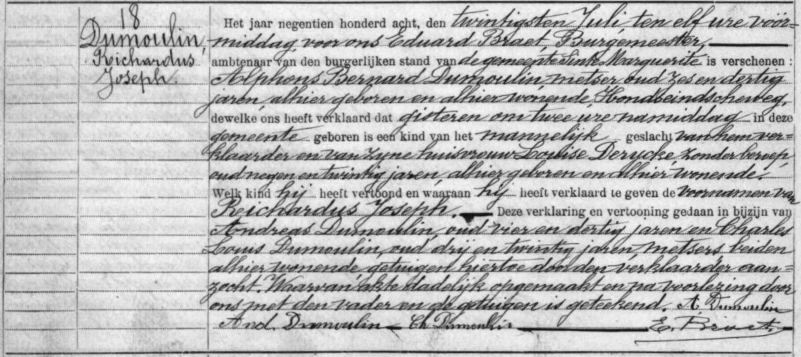 18
Dumoulin,
Richardus
Joseph.
Het jaar negentien honderd acht, den twintigsten Juli ten elf ure vóór-
middag voor ons Eduard Braet, Burgemeester,
ambtenaar van den burgerlijken stand van de gemeente Sinte Marguerite is verschenen :
Alphons Bernard Dumoulin metser oud zes en dertig
jaren, alhier geboren en alhier wonende, Hondseindscheweg,
dewelke ons heeft verklaard dat gisteren om twee ure namiddag in deze
gemeente geboren is een kind van het mannelijk geslacht van hem ver-
klaarder en van zyne huisvrouw Louise Derycke zonder beroep
oud negen en twintig jaren, alhier geboren en alhier wonende.
Welk kind hij heeft vertoond en waaraan hij heeft verklaard te geven de voornamen van
Richardus Joseph. Deze verklaring en vertooning gedaan in bijzijn van
Andreas Dumoulin, oud vier en dertig jaren en Charles
Louis Dumoulin, oud drij en twintig jaren, metsers beiden
alhier wonende getuigen hiertoe door den verklaarder aan-
zocht. Waarvan akte dadelijk opgemaakt en na voorlezing door
ons met den vader en de getuigen is geteekend. A. Dumoulin
And. Dumoulin Ch Dumoulin E. Braet